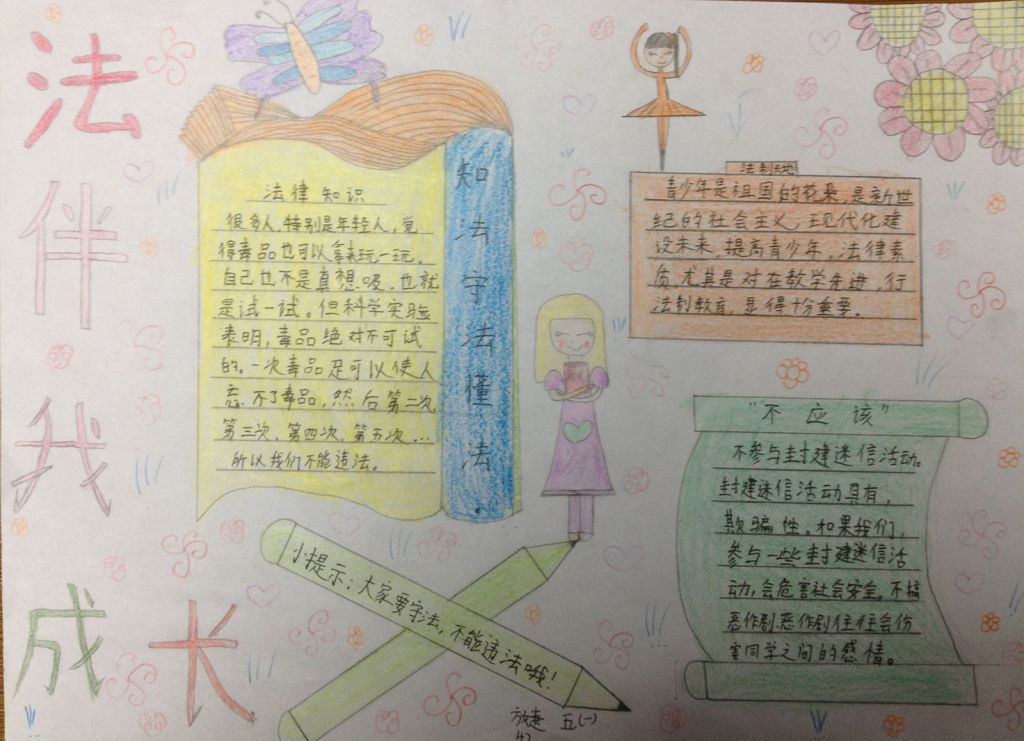 法伴我成长
法律知识
很多人,特别是年轻人,觉
得毒品也可以拿来玩一玩。
自己也不是真想吸,也就
是试一试。但科学实验
表明,毒品绝对不可试
的。一次毒品足可以使人
忘不了毒品,然后第二次
第三次、第四次、第五次…
所以我们不能违法。
知法守法懂法.
法制天地
青少年是祖国的花朵,是新世
纪的社会主义,现代化建
设未来,提高青少年,法律素
质,尤其是对在教学先进,行
法制教育,显得十分重要。
“不应该”
不参与封建迷信活动。
封建迷信活动具有,
欺骗性。如果我们,
参与一些封建迷信活
动,会危害社会安全。不搞
恶作剧.恶作剧往往会伤
害同学之间的感情。
小提示:大家要守法,不能违法哦!
五(一)
42